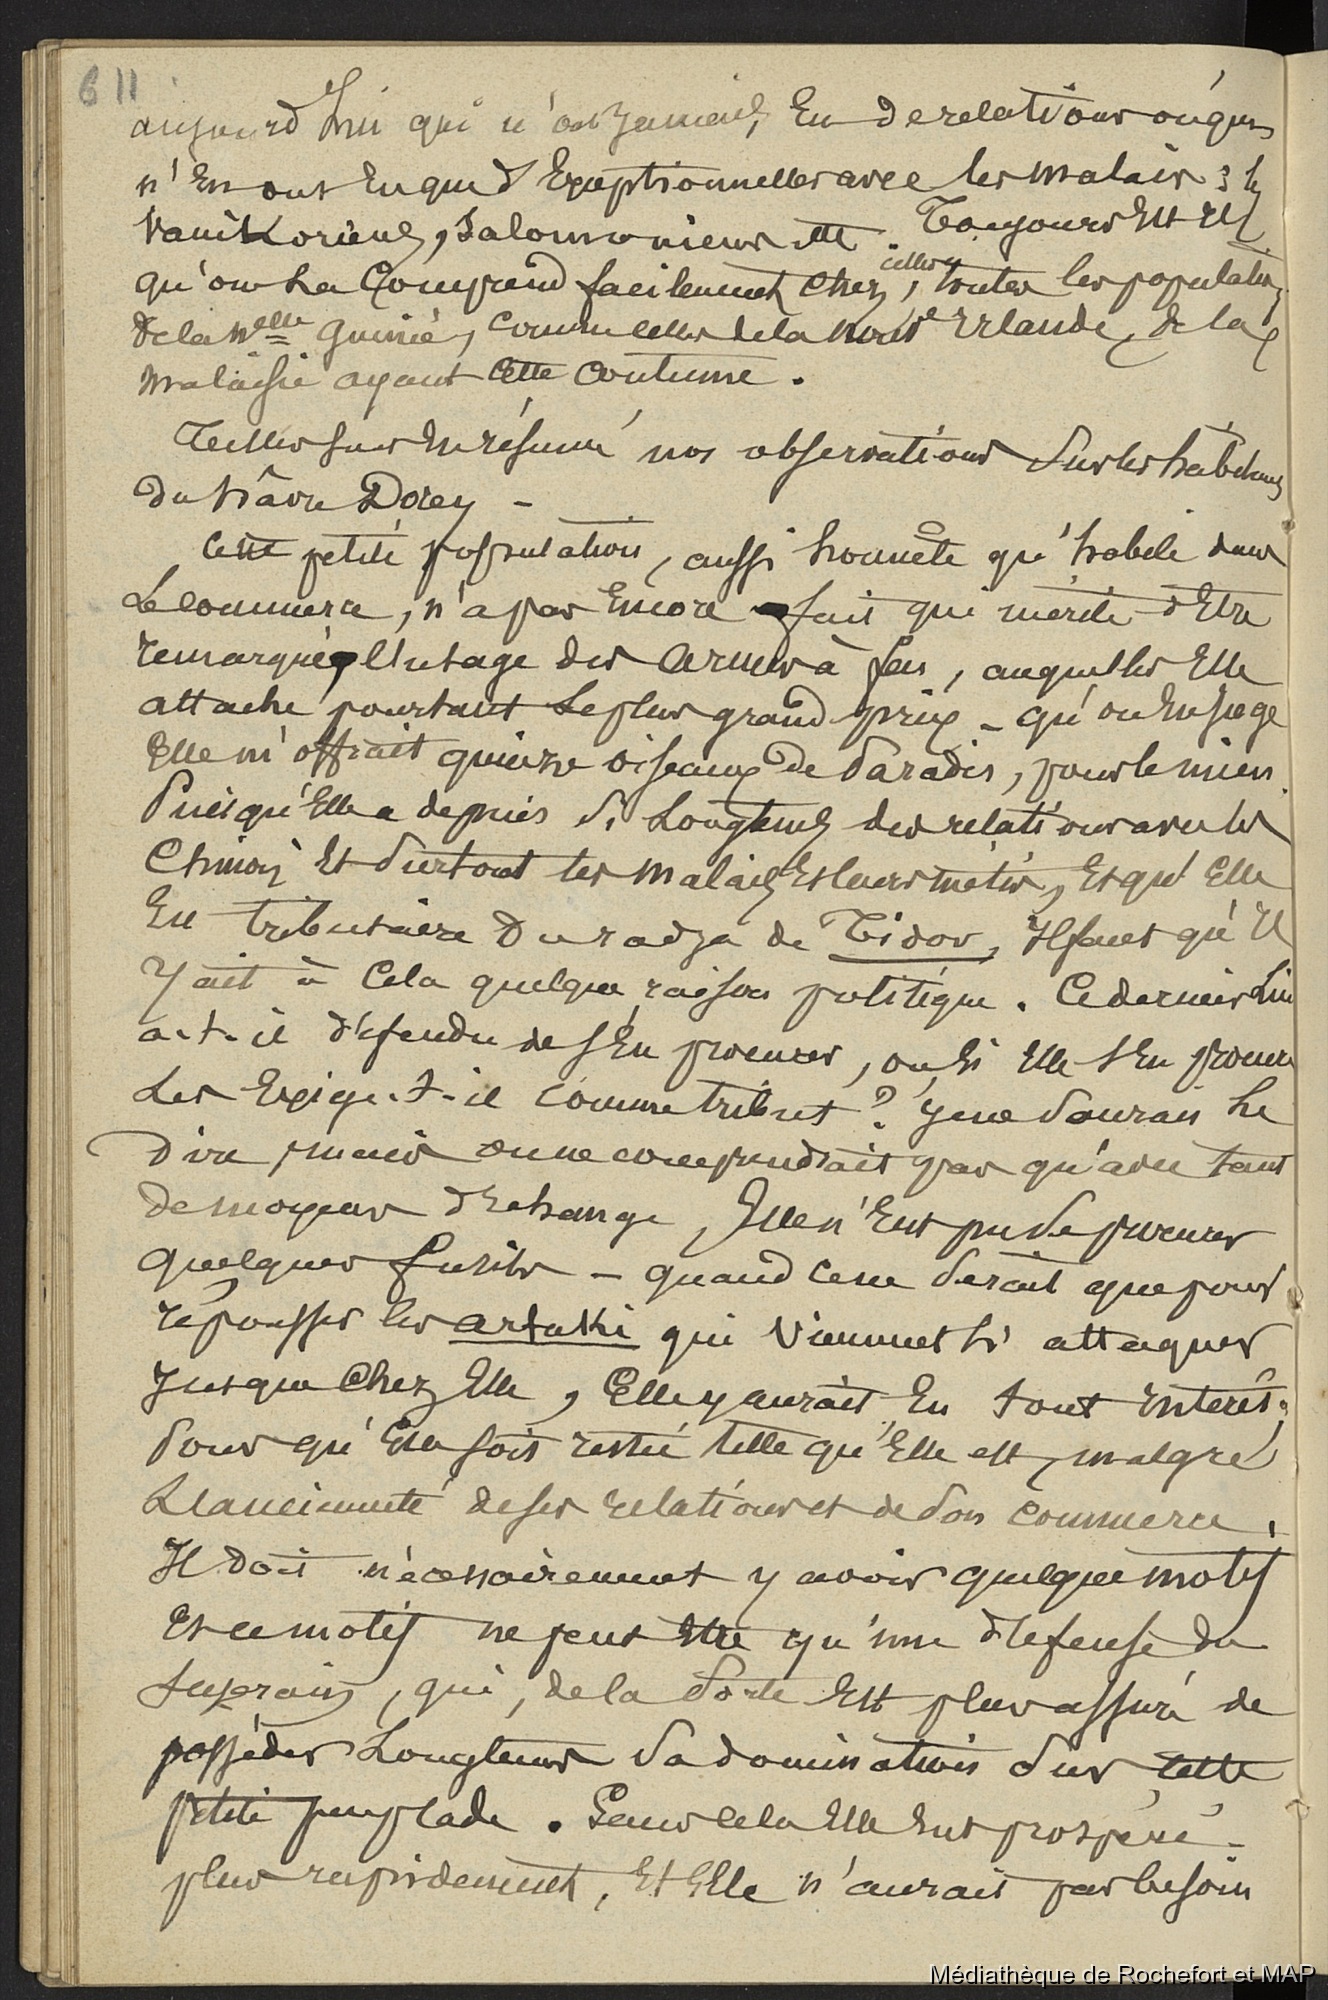 611
aujourd'hui qui n'ont jamais eu de relations ou qui
n'en ont eu que d'exceptionnelles avec les malais : les
Vanikoriens, Salomoniens etc. Toujours est il
qu'on le comprend facilement chez celles ci, toutes les populations
de la Nelle Guinée, comme celles de la Nouvle Irlande, de la
malaisie ayant cette coutume.
Telles sont en résumé nos observations sur les habitans
du hâvre Dorey –
Cette petite population, aussi honnête qu'habile dans
le commerce, n'a pas encore fait qui mérite d'être
remarqué, l'usage des armes à feu, auquelles elle
attache pourtant le plus grand prix – qu'on en juge
Elle m'offrait quinze oiseaux de Paradis, pour le mien.
Puisqu'elle a depuis si longtems des relations avec les
Chinois et surtout les malais et leurs métis, et qu'elle
est tributaire du radja de Tidor, il faut qu'il
y ait à cela quelque raison politique. Ce dernier lui
a-t-il défendu de s'en procurer, ou si elle s'en procure
les exige-t-il comme tribut ? je ne saurais le
dire, mais on ne comprendrait pas qu'avec tant
de moyens d'échange, elle n'eut pu se procurer
quelques fusils – quand ce ne serait que pour
repousser les arfaki qui viennent l'attaquer
jusque chez elle, Elle y aurait eu tout intérêt.
Pour qu'elle soit restée telle qu'elle est, malgré
l'ancienneté de ses relations et de son commerce,
Il doit nécessairement y avoir quelque motif
et ce motif ne peut être qu'une défense du
suzerain, qui, de la sorte est plus assuré de
posséder longtems sa domination sur cette
petite peuplade. Sans cela elle eut prospéré
plus rapidement, et Elle n'aurait pas besoin
Médiathèque de Rochefort et MAP